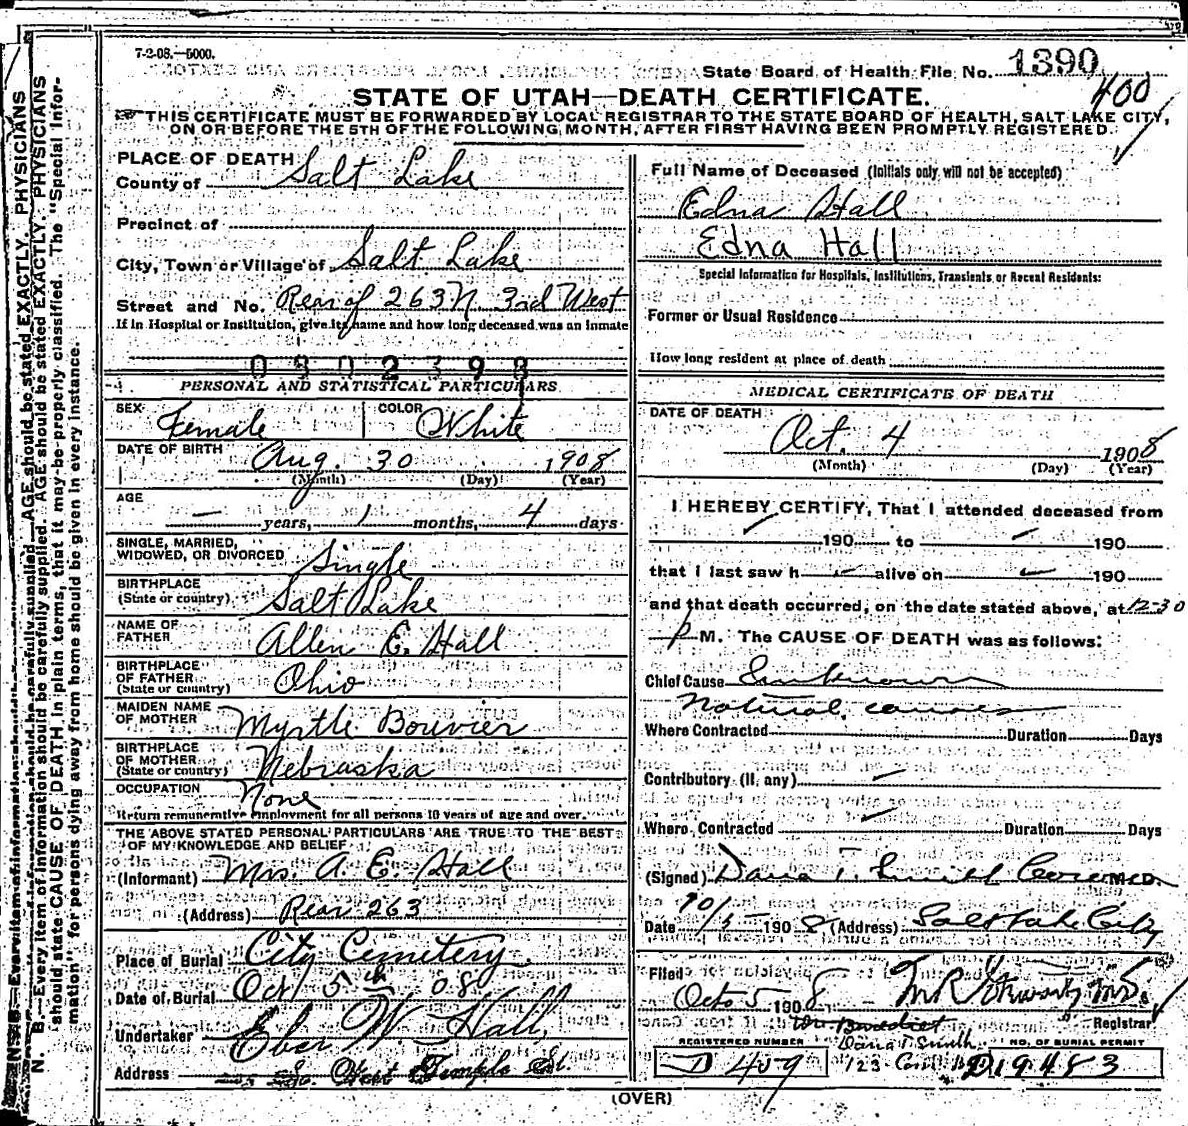 7-2-08.—5000.
State Board of Health File No. 1390
400
STATE OF UTAH—DEATH CERTIFICATE.
THIS CERTIFICATE MUST BE FORWARDED BY LOCAL REGISTRAR TO THE STATE BOARD OF HEALTH, SALT LAKE CITY,
ON OR BEFORE THE 5TH OF THE FOLLOWING MONTH, AFTER FIRST HAVING BEEN PROMPTLY REGISTERED.
PLACE OF DEATH
County of Salt Lake
Precinct of
City, Town or Village of Salt Lake
Street and No. Rear of 263 N. 3rd West
If in Hospital or Institution, give its name and how long deceased was an inmate
0302398
PERSONAL AND STATISTICAL PARTICULARS
SEX Female COLOR White
DATE OF BIRTH Aug. 30 1908
(Month) (Day) (Year)
AGE
— years, 1 months, 4 days
SINGLE, MARRIED,
WIDOWED, OR DIVORCED Single
BIRTHPLACE
(State or country) Salt Lake
NAME OF
FATHER Allen E. Hall
BIRTHPLACE
OF FATHER
(State or country) Ohio
MAIDEN NAME
OF MOTHER Myrtle Bouvier
BIRTHPLACE
OF MOTHER
(State or country) Nebraska
OCCUPATION None
Return remunerative employment for all persons 10 years of age and over.
THE ABOVE STATED PERSONAL PARTICULARS ARE TRUE TO THE BEST
OF MY KNOWLEDGE AND BELIEF
(Informant) Mrs. A. E. Hall
(Address) Rear 263
Place of Burial City Cemetery
Date of Burial Oct 5th 08
Undertaker Eber W Hall,
Address So. West Temple St.
Full Name of Deceased (Initials only will not be accepted)
Edna Hall
Edna Hall
Special Information for Hospitals, Institutions, Transients or Recent Residents:
Former or Usual Residence
How long resident at place of death
MEDICAL CERTIFICATE OF DEATH
DATE OF DEATH
Oct. 4 1908
(Month) (Day) (Year)
I HEREBY CERTIFY, That I attended deceased from
190 to 190
that I last saw h alive on 190
and that death occurred, on the date stated above, at 12-30
P M. The CAUSE OF DEATH was as follows:
Chief Cause Unknown
Natural causes
Where Contracted Duration Days
Contributory (if any)
Where Contracted Duration Days
(Signed) Dana T. Smith Coroner M.D.
Date 10/5 1908 (Address) Salt Lake City
Filed
Oct 5 1908
Registrar
Wm Benedict
Dana T. Smith
REGISTERED NUMBER NO. OF BURIAL PERMIT
D 409 123 D19483
(OVER)
N. B.—Every item of information should be carefully supplied. AGE should be stated EXACTLY. PHYSICIANS
should state CAUSE OF DEATH in plain terms, that it may be properly classified. The "Special Infor-
mation" for persons dying away from home should be given in every instance.